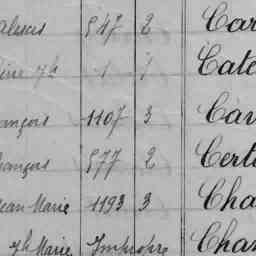 alexis 547 2 Car
1 1 Cate
ançois 1107 3 Cav
ançois 577 2 Certe
Jean Marie 1193 3 Cha
Marie Impropre Char